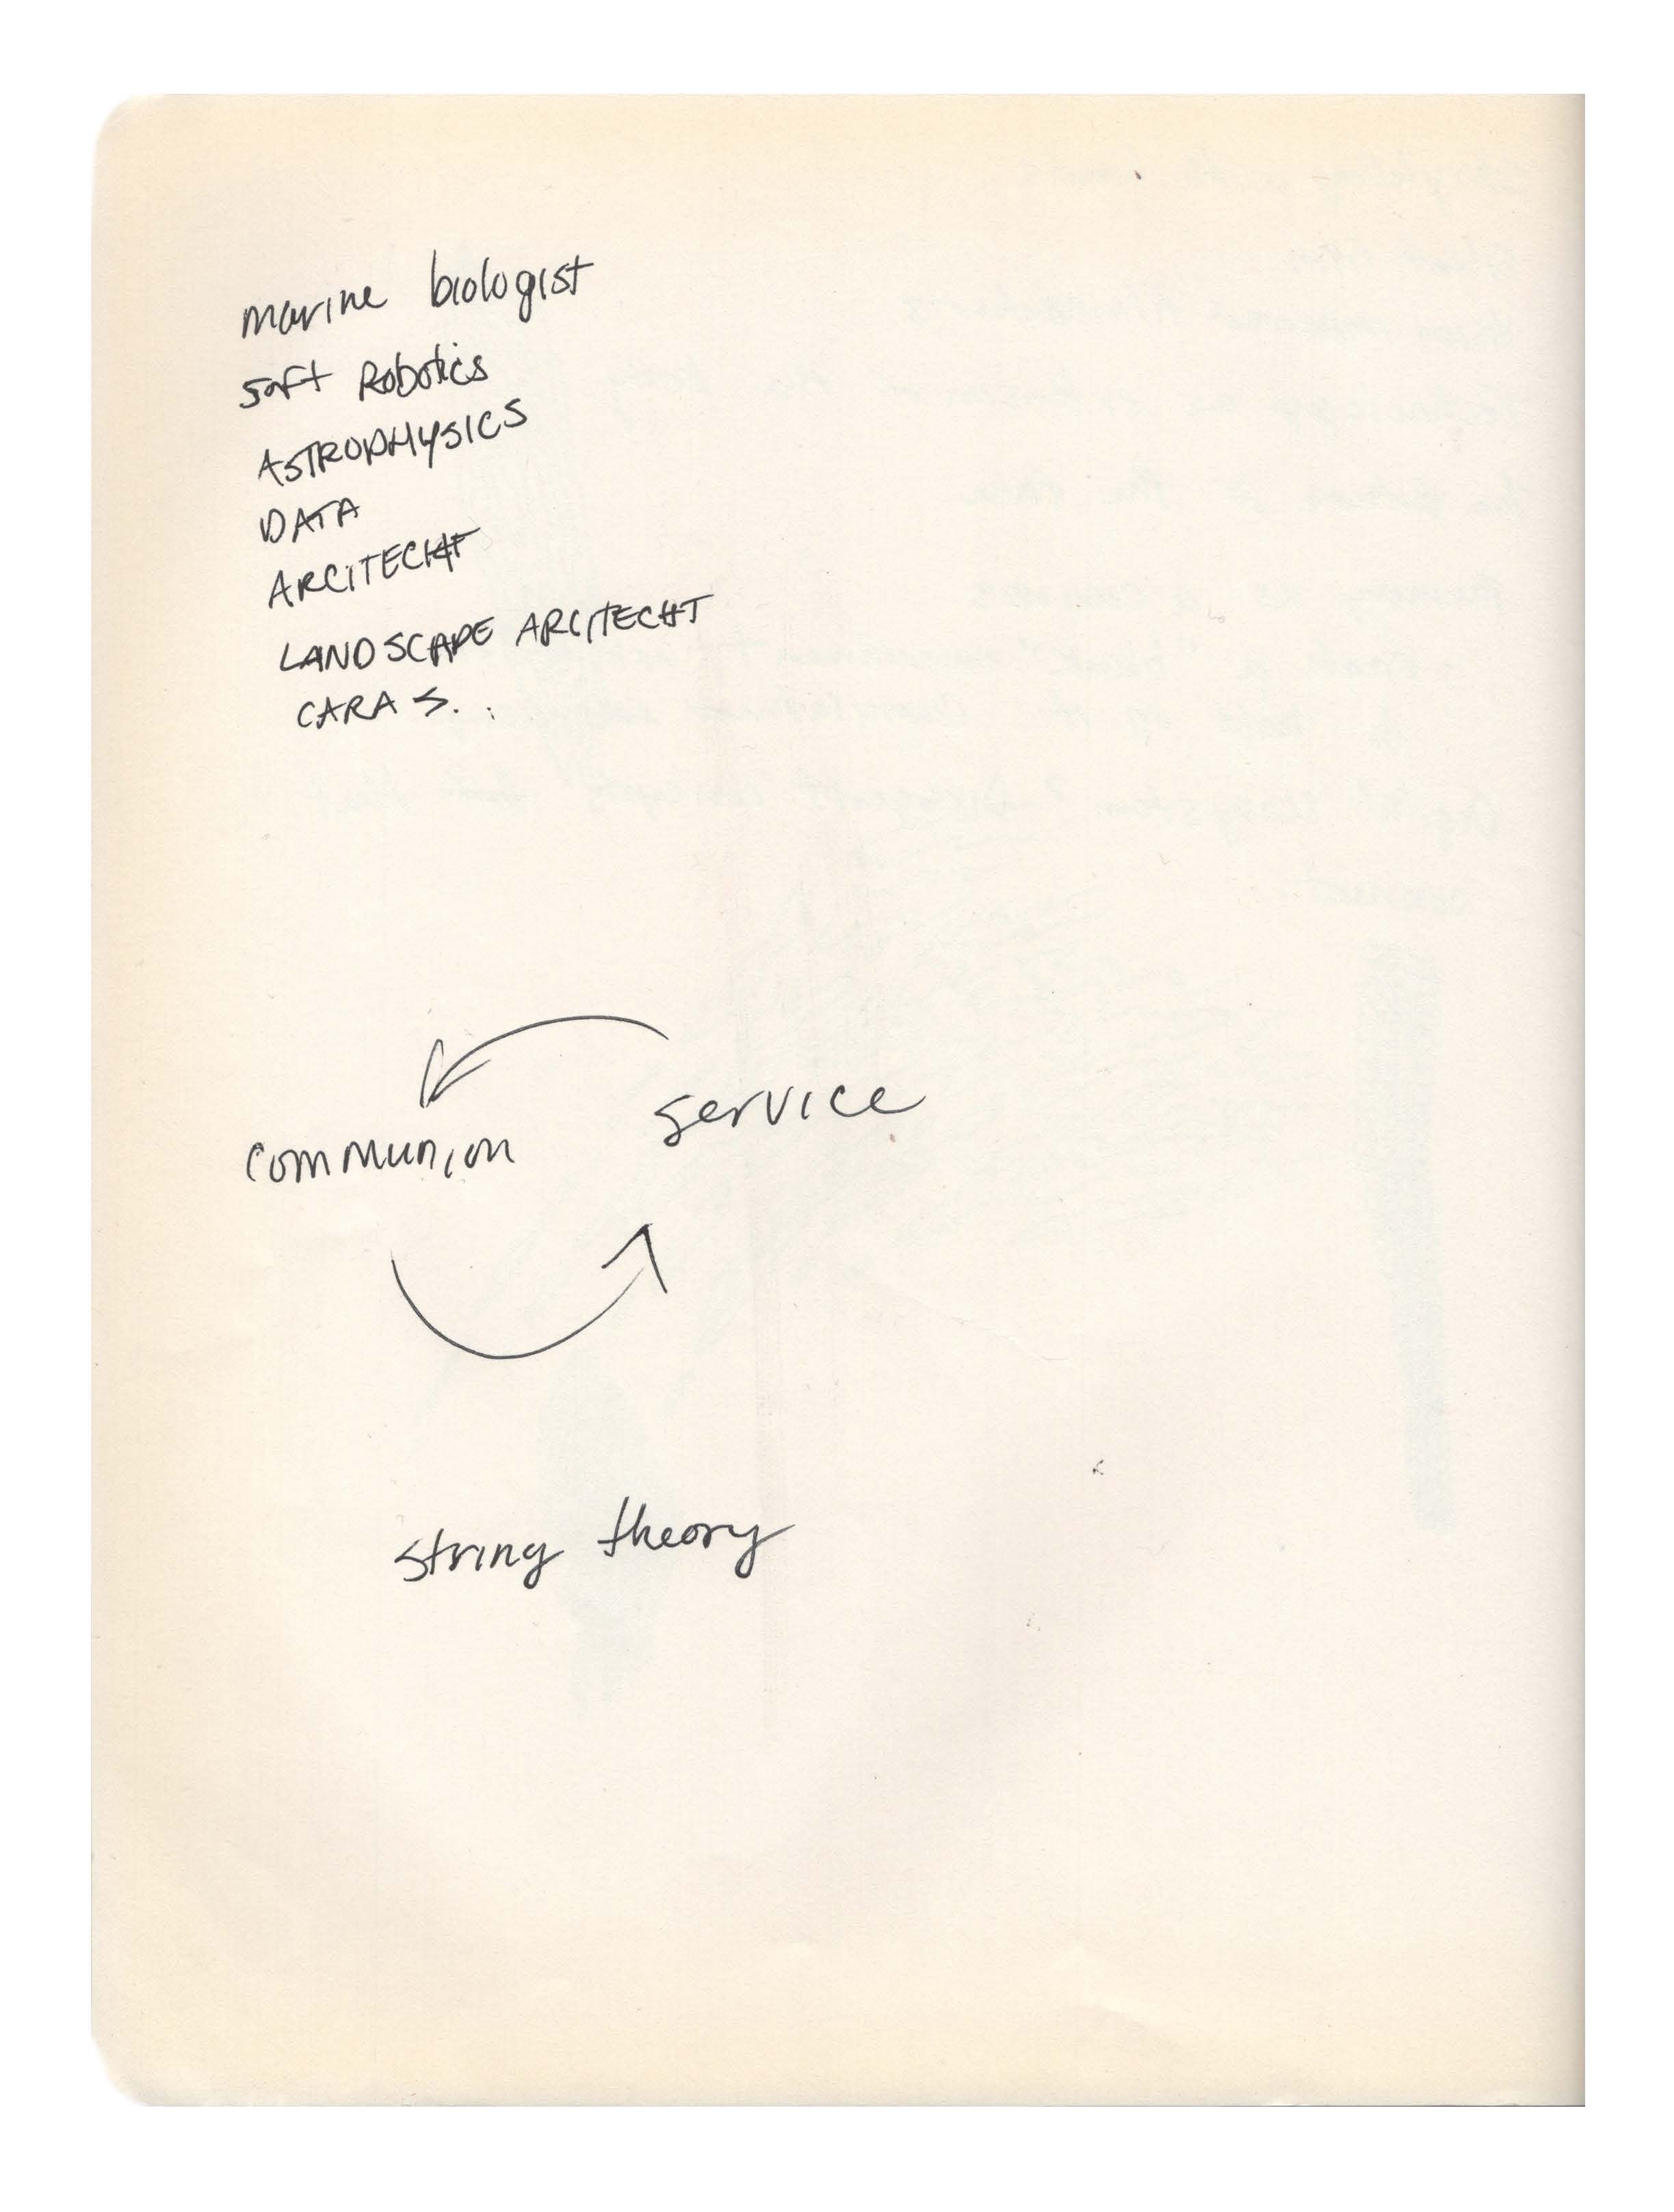 marine biologist
soft Robotics
ASTROPHYSICS
DATA
ARCITECHT
LANDSCAPE ARCITECHT
CARA S. :
service
communion
string theory